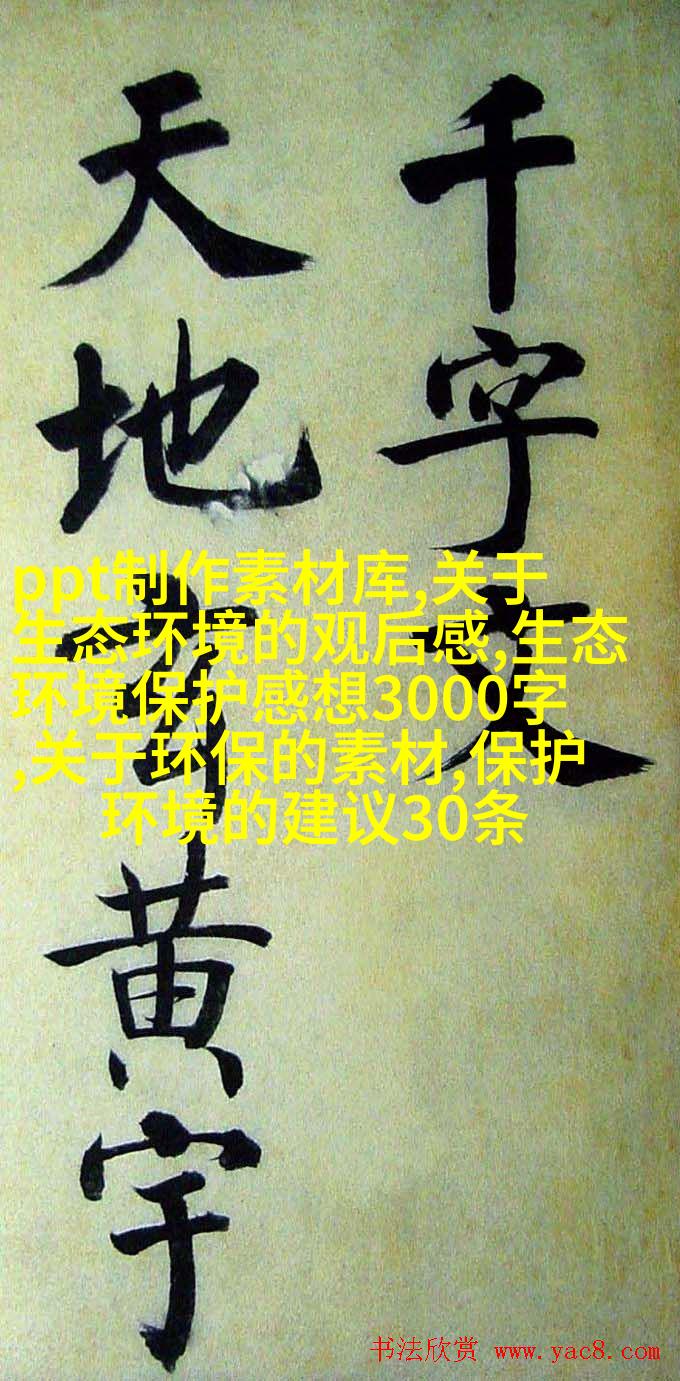 千字文
天地玄黄宇
ppt制作素材库,关于
生态环境的观后感,生态
环境保护感想3000字
,关于环保的素材,保护
环境的建议30条
书法欣赏 www.yac8.com